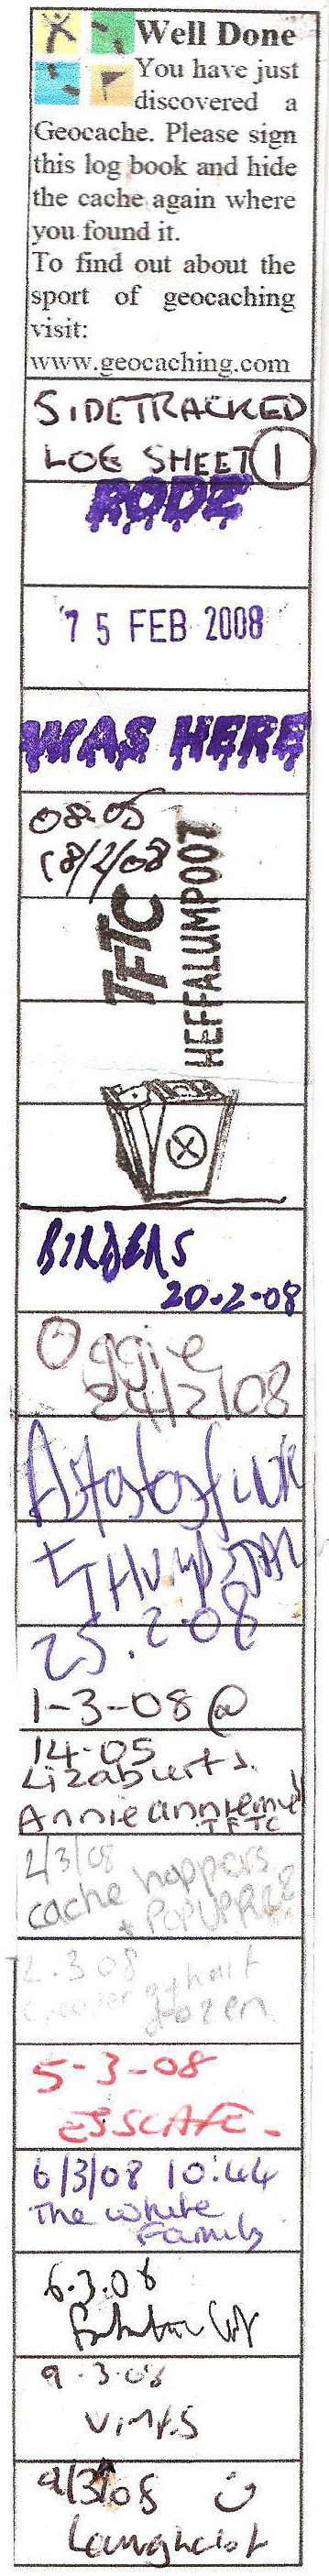 Well Done
You have just
discovered a
Geocache. Please sign
this log book and hide
the cache again where
you found it.
To find out about the
sport of geocaching
visit:
www.geocaching.com
SIDETRACKED
LOG SHEET 1
RODZ
15 FEB 2008
WAS HERE
08-05
18/2/08
TFTC
HEFFALUMPOOT
BIRDERS
20-2-08
Oggie
24/2/08
25.2.08
1-3-08 @
14-05
Lizaburts.
Annieannieme
TFTC
2/3/08
cache hoppers
+
2.3.08
dozen
5-3-08
6/3/08 10:44
The White
Family
6.3.08
9.3.08
9/3/08